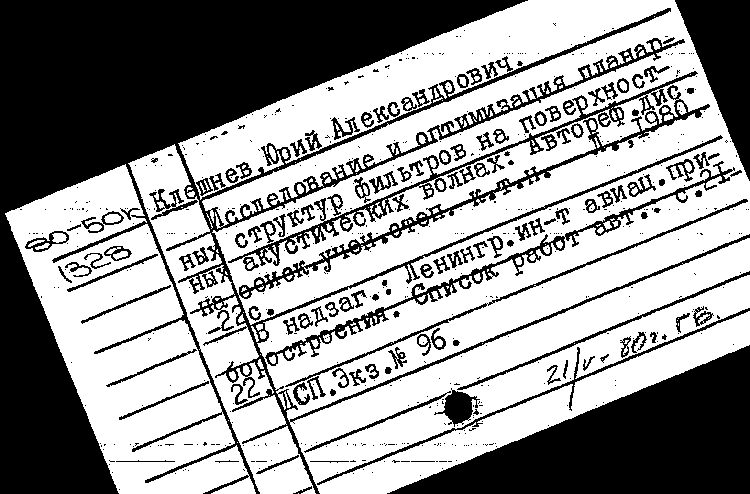 Клешнев, Юрий Александрович.
Исследование и оптимизация планар-
ных структур фильтров на поверхност-
ных акустических волнах: Автореф.дис.
на соиск.учен.степ. к.т.н. Л.,1980.
22с.
В надзаг.: Ленингр.ин-т авиац.при-
боростроения. Список работ авт.: с.21-
22.
ДСП.Экз.№ 96.
80-50к
1328
21/V-80г. ГВ.